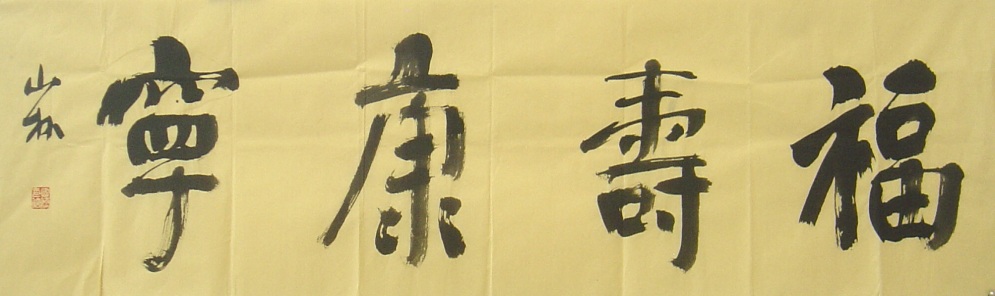 福壽康寧
山林